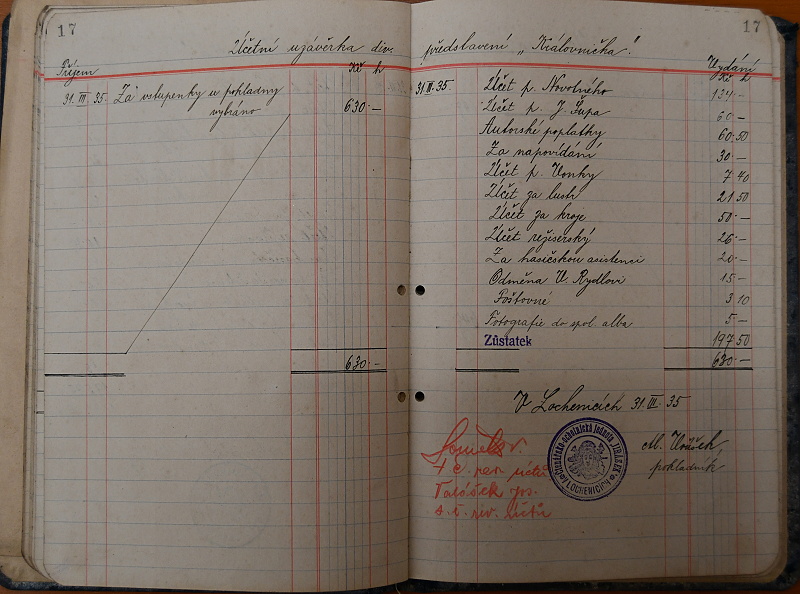 17
Účetní uzávěrka div.
Příjem
Kč h
31. III. 35. Za vstupenky u pokladny
vybráno
630·—
630·—
17
představení „Královnička“.
Vydání
Kč h
31 III. 35 Účet p. Novotného 134·—
Účet p. J. Šupa 60·—
Autorské poplatky 60·50
Za napovídání 30·—
Účet p. Vonky 7 40
Účet za lustr 21 50
Účet za kroje 50·—
Účet režisérský 26·—
Za hasičskou asistenci 20·—
Odměna V. Rydlovi 15·—
Poštovné 3 10
Fotografie do spol. alba 5·—
Zůstatek 197 50
630·—
V Lochenicích 31. III. 35
JIRÁSEK
LOCHENICÍCH
pokladník